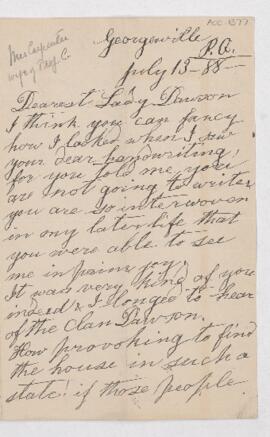 ACC-1377
Mrs Carpenter
wife of
Georgeville
P.Q.
July 13 - 88 -
Dearest Lady Dawson
I think you can fancy
how I looked when I saw
your dear handwriting,
for you told me, you
are not going to write,
you are so interwoven
in my later life that
you were able to see
me in pain & joy.
It was very kind of you
indeed & I longed to hear
of the Clan Dawson.
How provoking to find
the house in such a
state! if those people